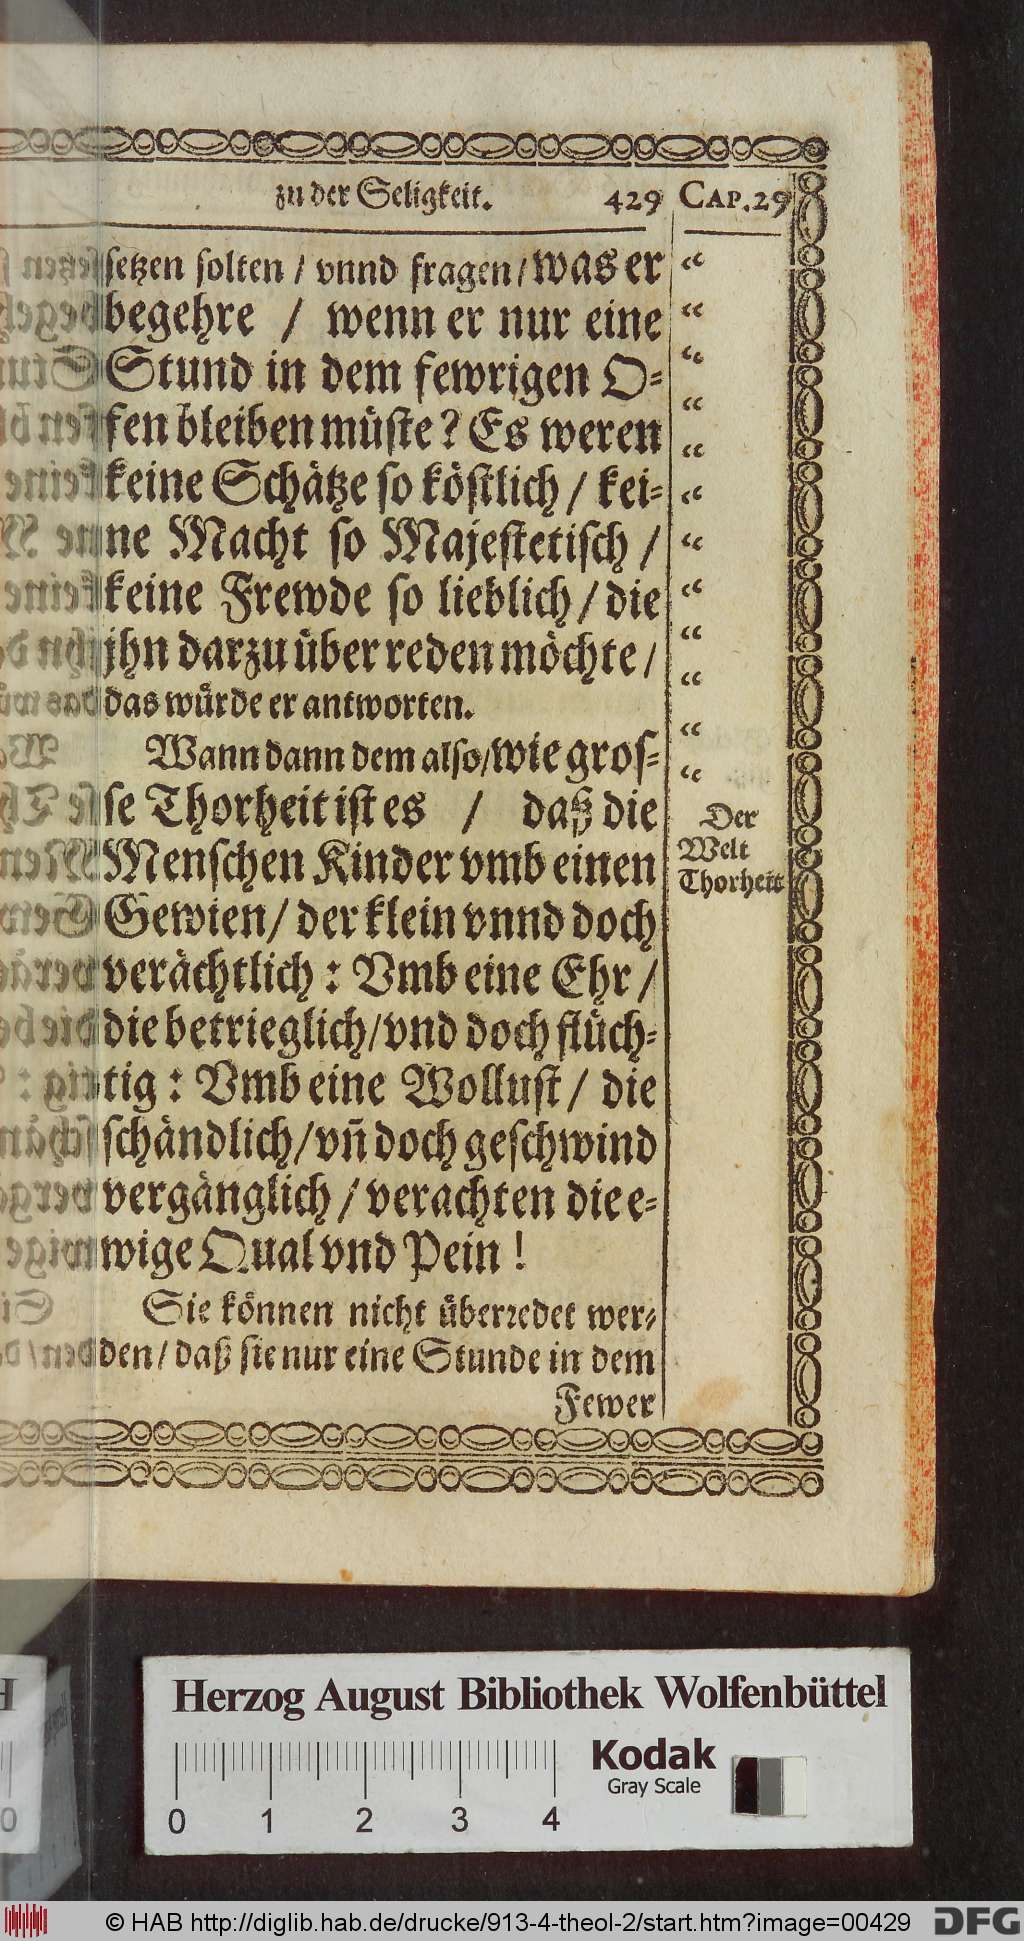 zu der Seligkeit. 429 CAP.29
setzen solten / vnnd fragen / was er
begehre / wenn er nur eine
Stund in dem fewrigen O⸗
fen bleiben müste? Es weren
keine Schätze so köstlich / kei⸗
ne Macht so Majestetisch /
keine Frewde so lieblich / die
jhn darzu überreden möchte /
das würde er antworten.
Wann dann dem also / wie gros⸗
se Thorheit ist es / daß die
Menschen Kinder vmb einen
Gewien / der klein vnnd doch
verächtlich : Vmb eine Ehr /
die betrieglich / vnd doch flüch⸗
tig : Vmb eine Wollust / die
schändlich / vñ doch geschwind
vergänglich / verachten die e⸗
wige Qual vnd Pein !
Sie können nicht überredet wer⸗
den / daß sie nur eine Stunde in dem
Fewer
Der
Welt
Thorheit
Herzog August Bibliothek Wolfenbüttel
Kodak
Gray Scale
0 1 2 3 4
© HAB http://diglib.hab.de/drucke/913-4-theol-2/start.htm?image=00429
DFG